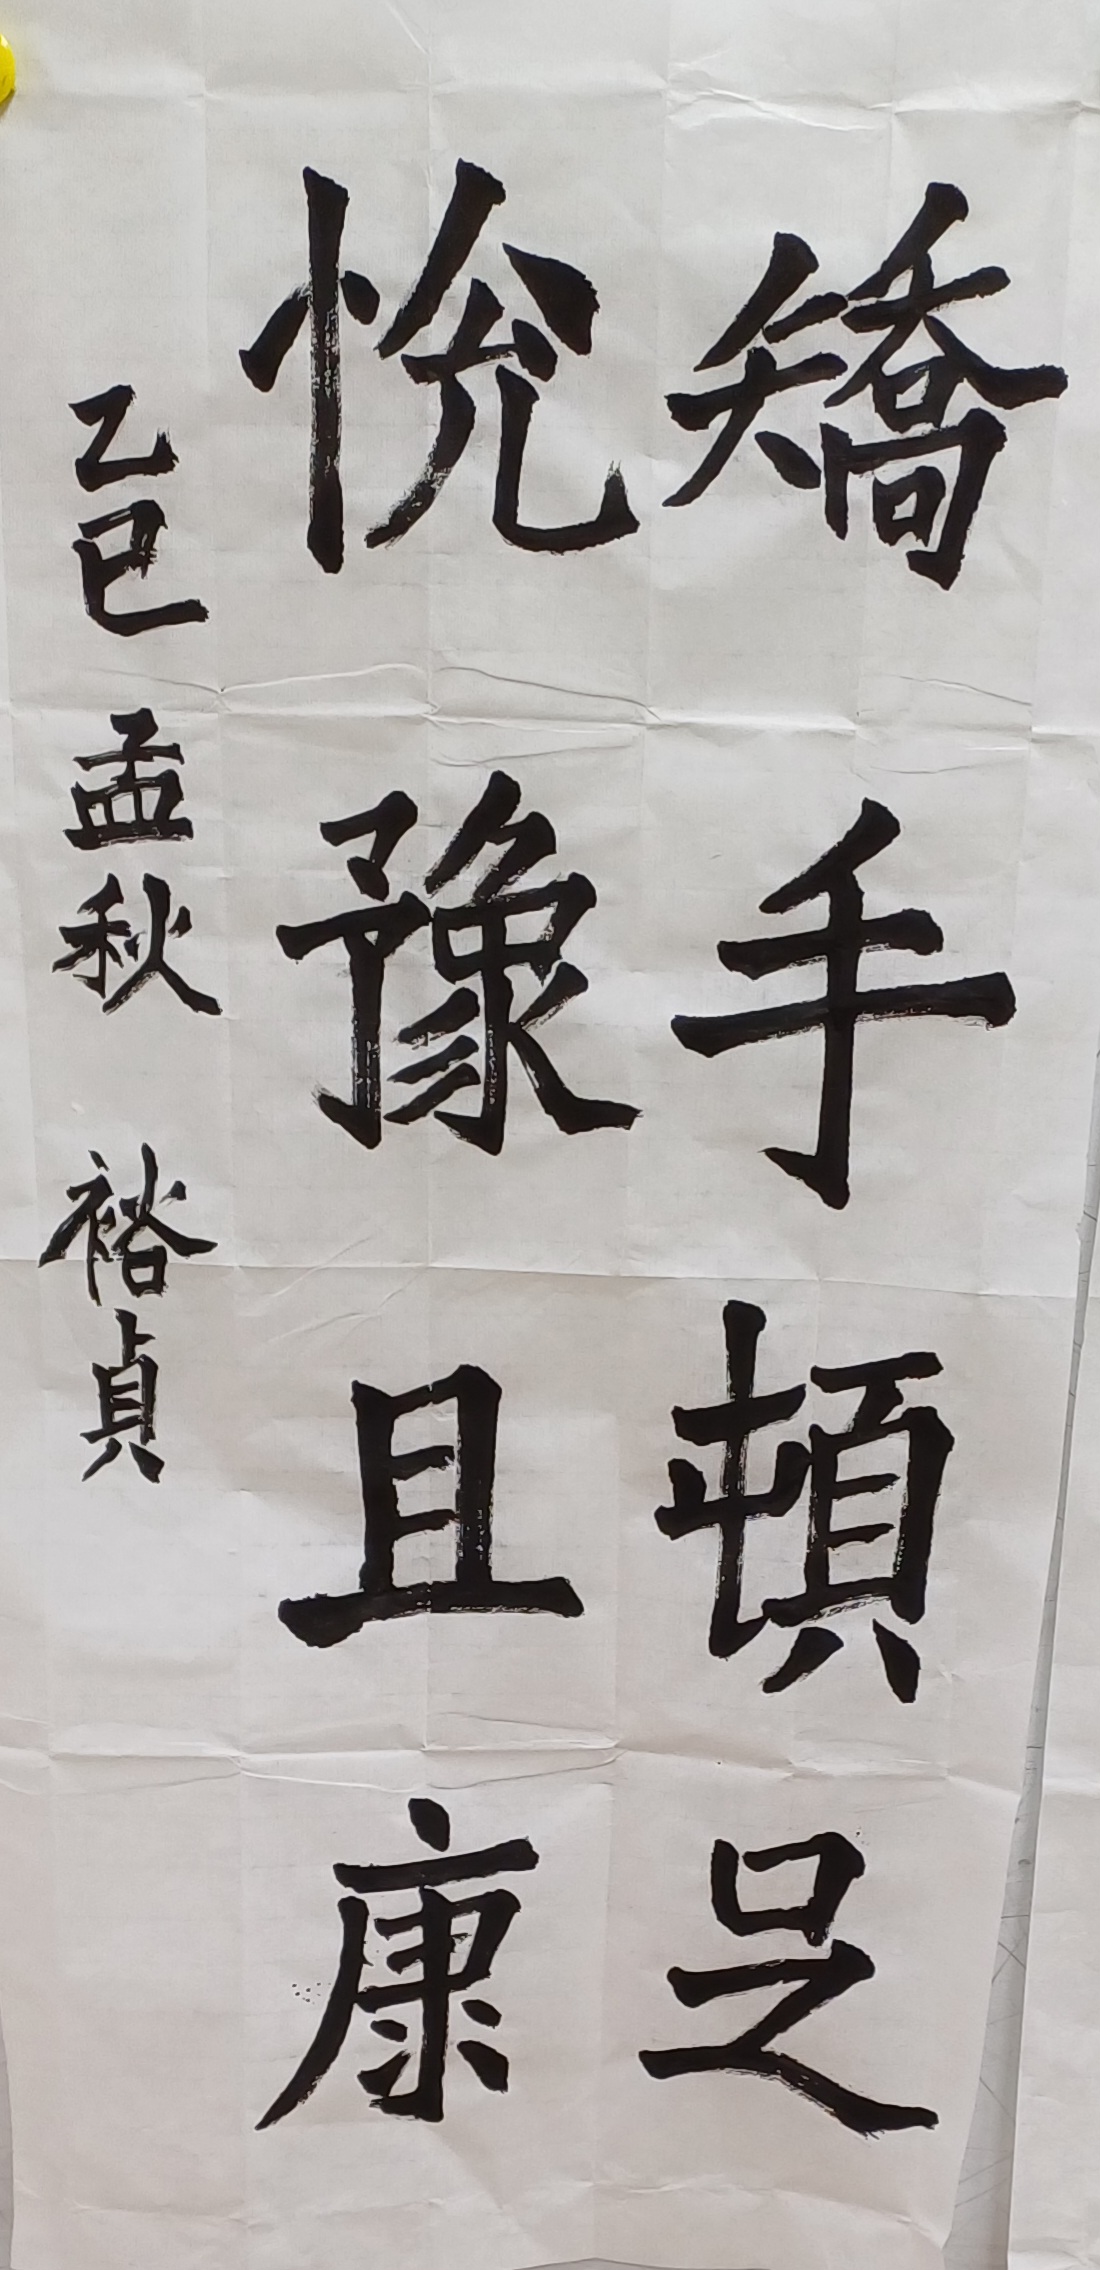 矯手頓足
悅豫且康
乙巳 孟秋 裕貞